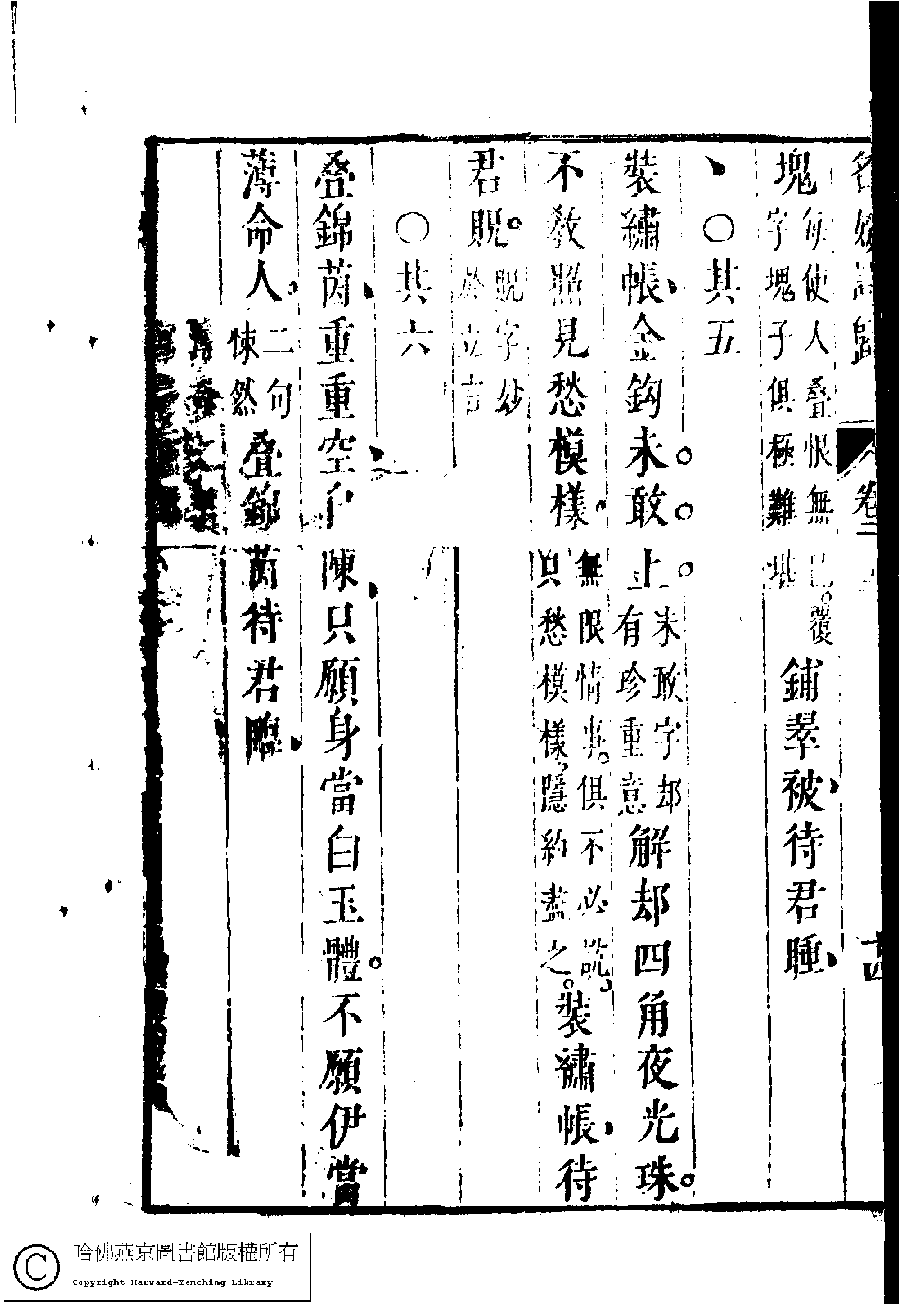 名媛詩歸 卷二 十四
塊每使人疊恨無已。覆字塊子俱極難堪鋪翠被、待君睡、
○其五
裝繡帳、金鈎未敢上未敢字却有珍重意解却四角夜光珠。
不教照見愁模樣、無限情事。俱不必說。只愁模樣,隱約盡之。裝繡帳、待
君貺。貺字妙於立言
○其六
疊錦茵、重重空自陳、只願身當白玉體。不願伊當
薄命人、二句悚然疊錦茵待君臨、
哈佛燕京圖書館版權所有
Copyright Harvard-Yenching Library